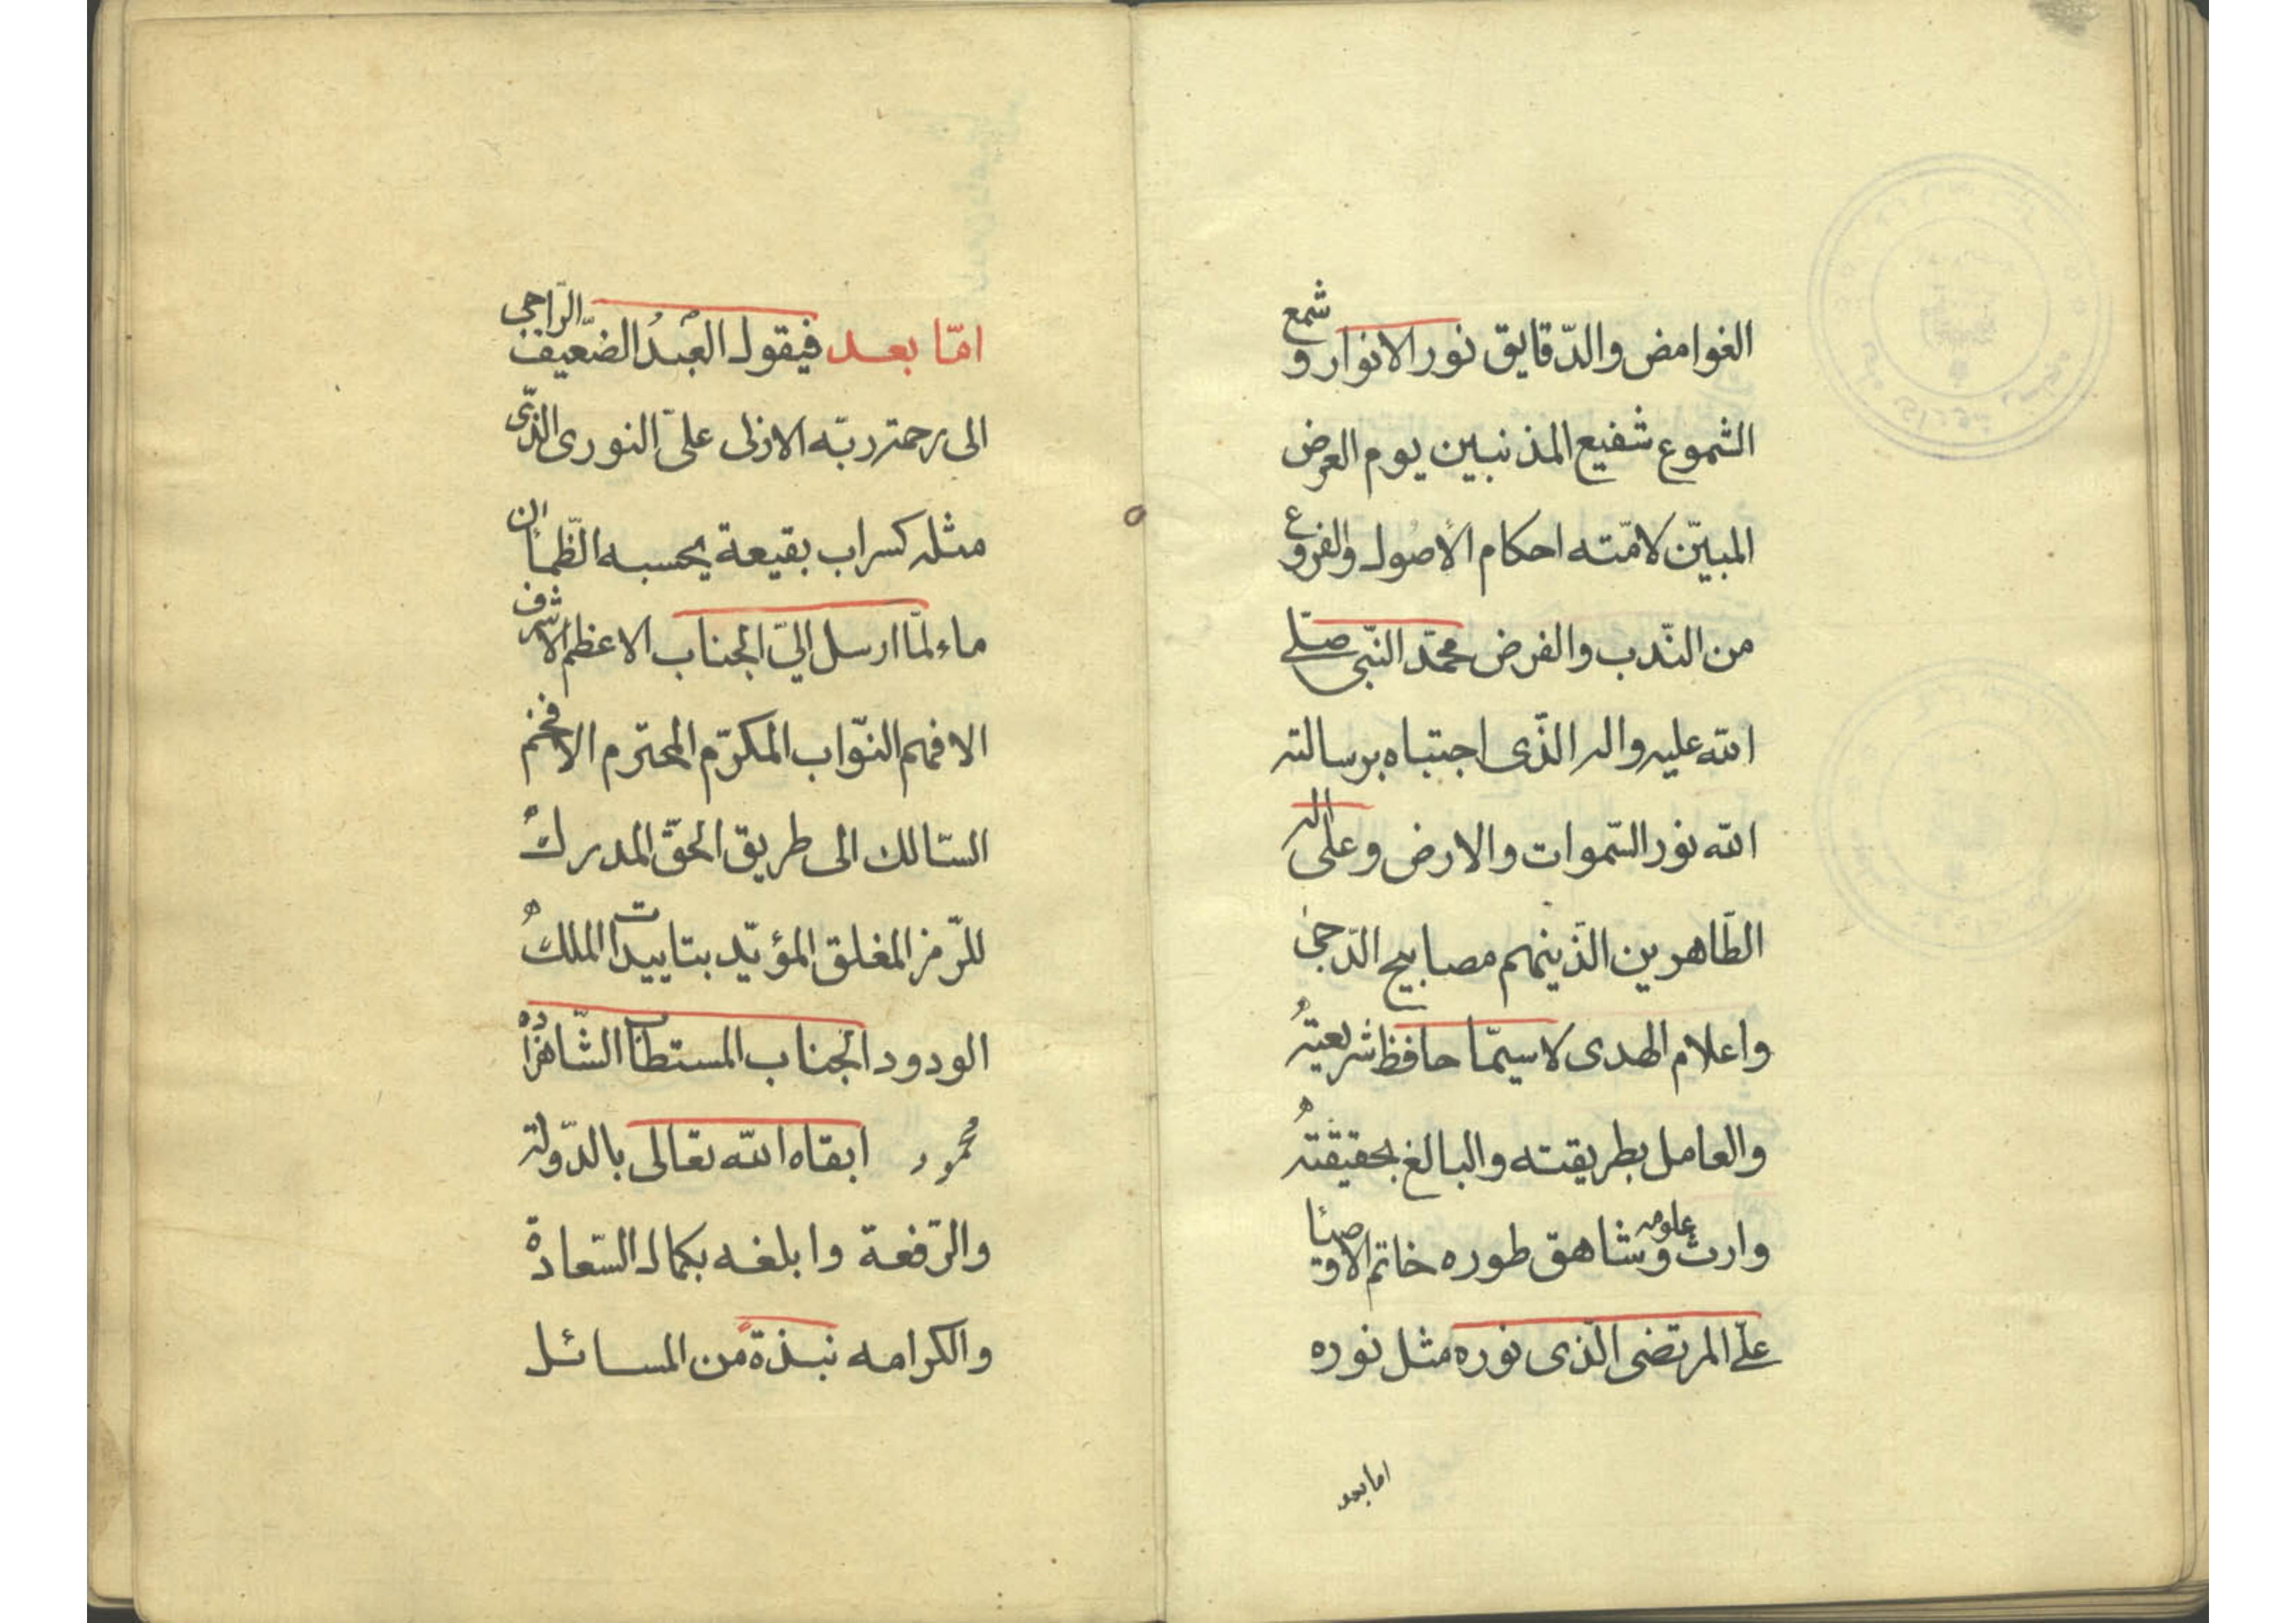 الغوامض والدّقايق نور الانوار و شمع
الشموع شفيع المذنبين يوم العرض
المبيّن لامّته احكام الأصول والفروع
من النّدب والفرض محمّد النّبى صلّى
الله عليه واله الذّى اجتباه برسالته
الله نور السّموات والارض وعلى اله
الطّاهرين الذّينهم مصابيح الدّجى
واعلام الهدى لاسيمّا حافظ شريعتهُ
والعامل بطريقته والبالغ بحقيقتهُ
وارث علومه وشاهق طوره خاتم الاوصيا
علىّ المرتضى الذّى نوره مثل نوره
اما بعد
امّا بعد فيقول العبدُ الضّعيف الرّاجى
الى رحمته ربّه الازلى علىّ النورى الذّى
مثله كسراب بقيعة يحسبه الظّمأن
ماء لمّا ارسل الىّ الجناب الاعظم الاشرف
الافهم النوّاب المكرّم المحترم الافخم
السّالك الى طريق الحقّ المدرك
للرّمز المغلق المؤيّد بتاييدات الملك
الودود الجناب المستطاب الشّاهزاده
محمود ابقاه الله تعالى بالدّولة
والرّفعة وابلغه بكمال السّعادة
والكرامه نبذةً من المسائل